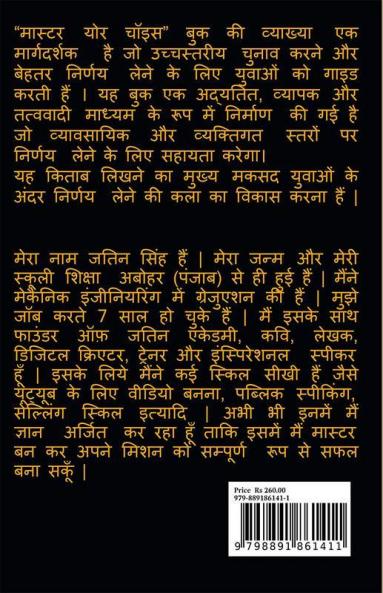 “मास्टर योर चॉइस” बुक की व्याख्या एक
मार्गदर्शक है जो उच्चस्तरीय चुनाव करने और
बेहतर निर्णय लेने के लिए युवाओं को गाइड
करती हैं | यह बुक एक अद्यतित, व्यापक और
तत्ववादी माध्यम के रूप में निर्माण की गई है
जो व्यावसायिक और व्यक्तिगत स्तरों पर
निर्णय लेने के लिए सहायता करेगा।
यह किताब लिखने का मुख्य मकसद युवाओं के
अंदर निर्णय लेने की कला का विकास करना हैं |
मेरा नाम जतिन सिंह हैं | मेरा जन्म और मेरी
स्कूली शिक्षा अबोहर (पंजाब) से ही हुई हैं | मैंने
मेकैनिक इंजीनियरिंग में ग्रेजुएशन की हैं | मुझे
जॉब करते 7 साल हो चुके हैं | मैं इसके साथ
फाउंडर ऑफ़ जतिन एकेडमी, कवि, लेखक,
डिजिटल क्रिएटर, ट्रेनर और इंस्पिरेशनल स्पीकर
हूँ | इसके लिये मैंने कई स्किल सीखी हैं जैसे
यूट्यूब के लिए वीडियो बनना, पब्लिक स्पीकिंग,
सेल्लिंग स्किल इत्यादि | अभी भी इनमें में
ज्ञान अर्जित कर रहा हूँ ताकि इसमें मैं मास्टर
बन कर अपने मिशन को सम्पूर्ण रूप से सफल
बना सकूँ |
Price Rs 260.00
979-889186141-1
9 798891 861411